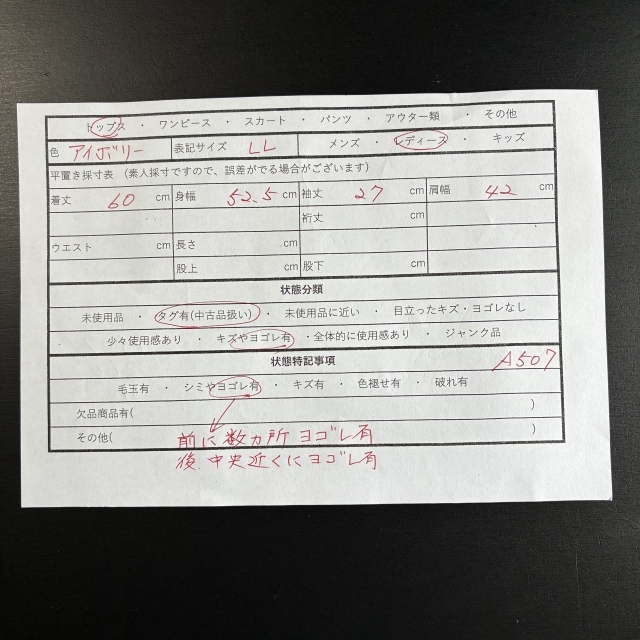 トップス ・ ワンピース ・ スカート ・ パンツ ・ アウター類 ・ その他
色 アイボリー 表記サイズ LL メンズ ・ レディース ・ キッズ
平置き採寸表 (素人採寸ですので、誤差がでる場合がございます)
着丈 60 cm 身幅 52.5 cm 袖丈 27 cm 肩幅 42 cm
裄丈 cm
ウエスト cm 長さ cm
股上 cm 股下 cm
状態分類
未使用品 ・ タグ有(中古品扱い) ・ 未使用品に近い ・ 目立ったキズ・ヨゴレなし
少々使用感あり ・ キズやヨゴレ有 ・ 全体的に使用感あり ・ ジャンク品
状態特記事項 A507
毛玉有 ・ シミやヨゴレ有 ・ キズ有 ・ 色褪せ有 ・ 破れ有
欠品商品有( )
その他( 前に数カ所ヨゴレ有 )
後、中央近くにヨゴレ有